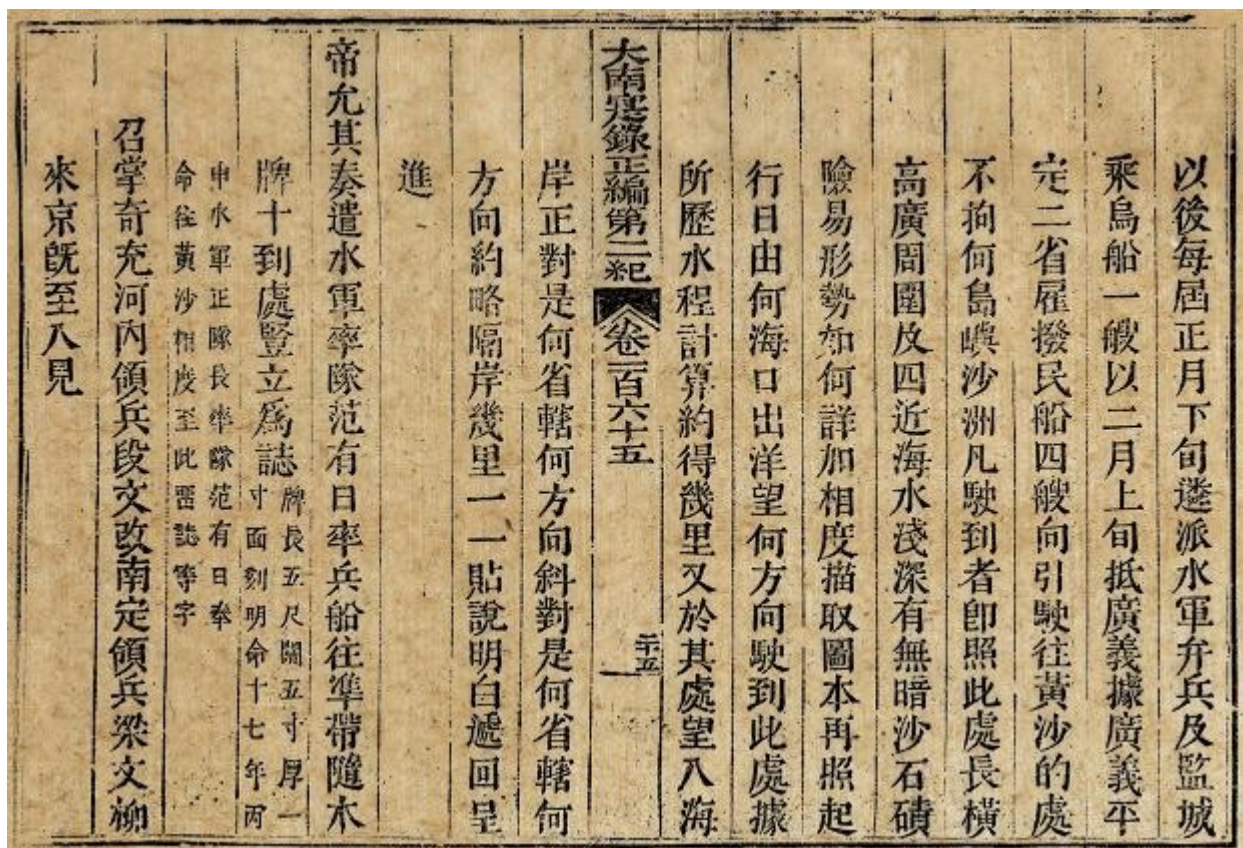 以後每屆正月下旬遴派水軍弁兵及監城
乘烏船一艘以二月上旬抵廣義據廣義平
定二省雇撥民船四艘向引駛往黃沙的處
不拘何島嶼沙洲凡駛到者卽照此處長橫
高廣周圍及四近海水淺深有無暗沙石磧
險易形勢如何詳加相度描取圖本再照起
行日由何海口出洋望何方向駛到此處據
所歷水程計算約得幾里又於其處望入海
大南寔錄正編第二紀 卷一百六十五 二十五
岸正對是何省轄何方向斜對是何省轄何
方向約略隔岸幾里一一貼說明白遞回呈
進
帝允其奏遣水軍率隊范有日率兵船往準帶隨木
牌十到處豎立爲誌
牌長五尺闊五寸厚一
寸面刻明命十七年丙
申水軍正隊長率隊范有日奉
命往黃沙相度至此留誌等字
召掌奇充河內領兵段文改南定領兵梁文柳
來京既至入見